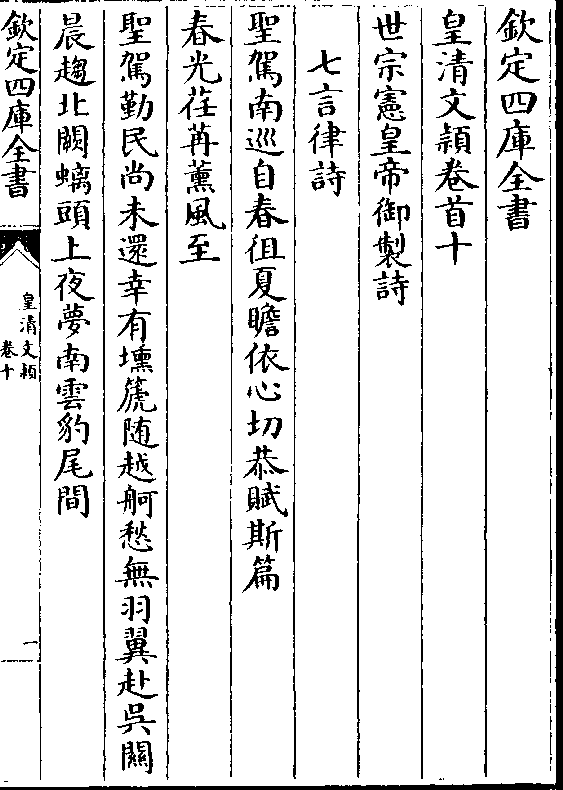 欽定四庫全書
皇清文頴卷首十
世宗憲皇帝御製詩
七言律詩
聖駕南巡自春徂夏瞻依心切恭賦斯篇
春光荏苒薰風至
聖駕勤民尚未還幸有壎箎随越舸愁無羽翼赴吳關
晨趨北闕螭頭上夜夢南雲豹尾間
欽定四庫全書
皇清文頴
卷十
一